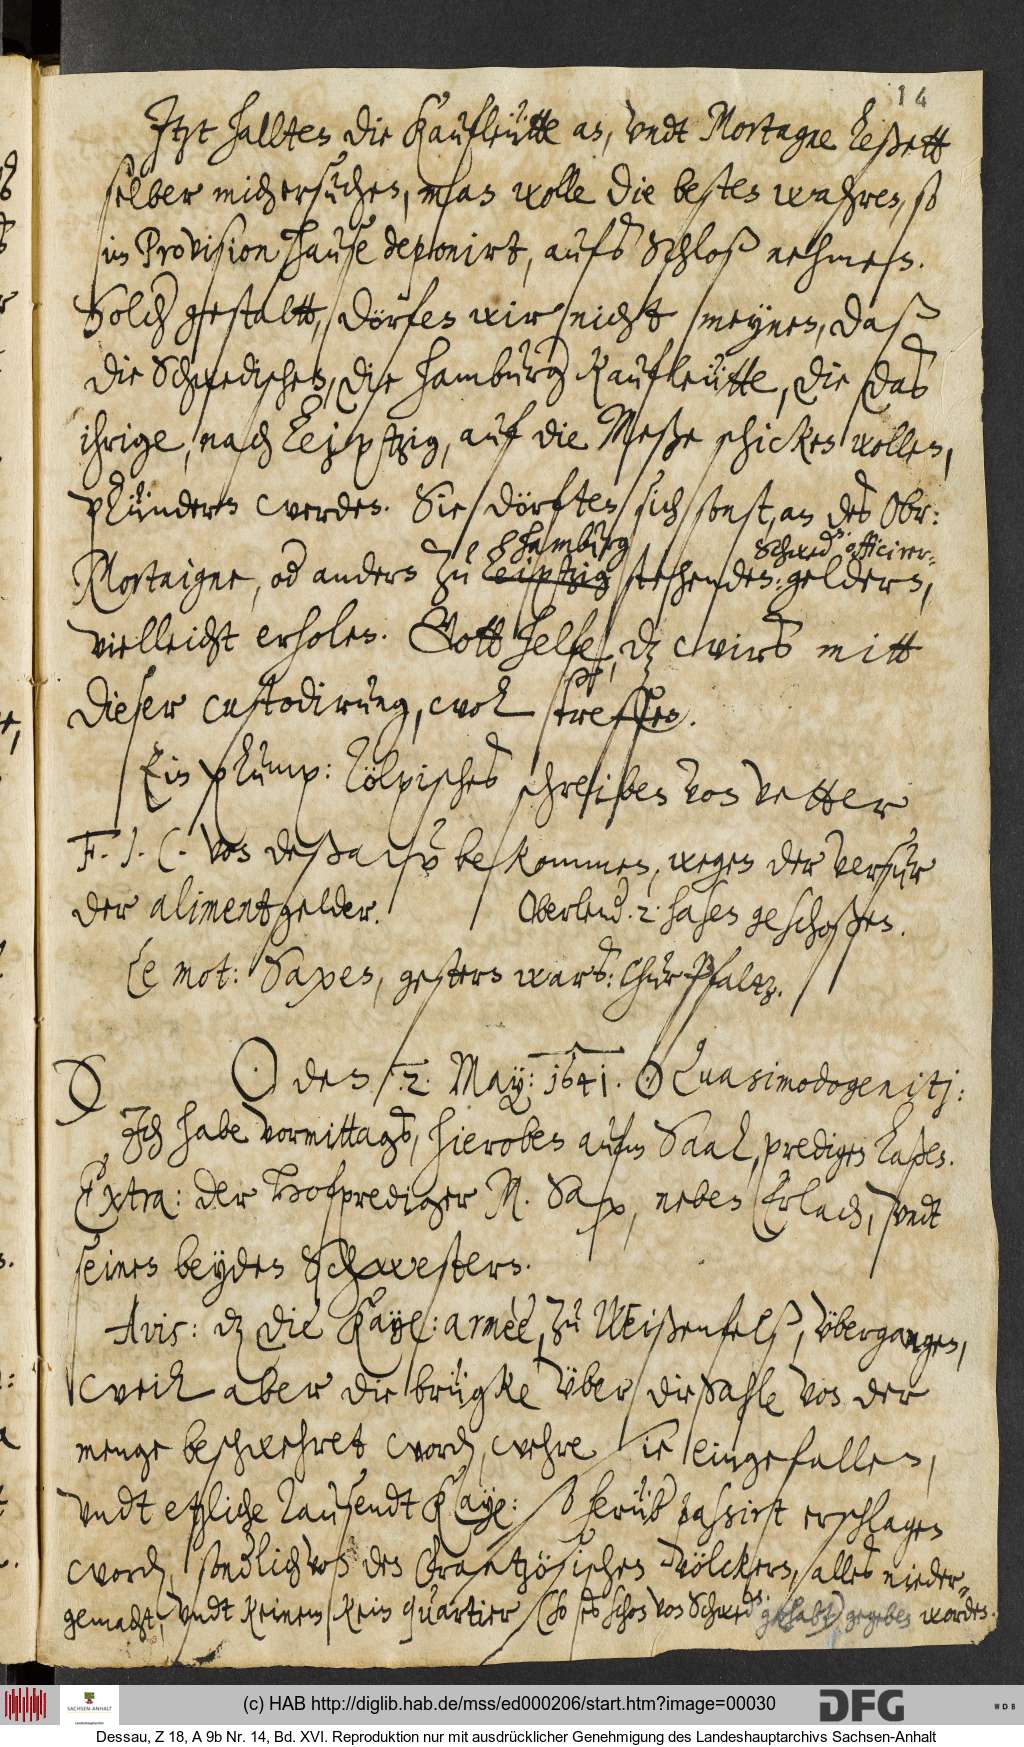 14
Itzt hallten die Kaufleütte an, undt Mortagne leßett
selber mich ersuchen, man wolle die besten wahren, so
im Provision Hause deponirt, aufs Schloß nehmen.
Solcher gestaltt, dörfen wir nicht meynen, daß
die Schwedischen, die Hamburger Kaufleütte, die das
ihrige, nach Leiptzig, auf die Meße schicken wollen,
plündern werden. Sie dörften sich sonst, an des Obr:
hamburg Schwed: officirer-
Mortaigne, od anders zu Leiptzig stehenden: geldern,
vielleicht erholen. Gott helfe, dz wirs mitt
dieser custodirung, wol treffen.
Ein plump: tölpisches schreiben von Vetter
F. J. C. von deßaw bekommen, wegen der versur
der alimentgelder. Oberlend. 2 hasen geschoßen.
Le mot: Saxen, gestern wars: Chur Pfaltz.
⊙ den 2. May: 1641. ⊙ Quasimodogenitj:
Ich habe vormittags, hieroben aufm Saal, predigen laßen.
Extra: der Hofprediger M. Sax, neben Erlach, undt
seinen beyden Schwestern.
Avis: dz die Kayl: armèe, zu Weißenfelß, übergangen,
weil aber die brügke über die Sahle von der
menge beschwehret word, wehre sie eingefallen,
undt etzliche tausendt Kayl: so herüb passirt erschlagen
word, sonderlich von den Frantzösischen völckern, alles nieder-
gemacht, undt keinem kein quartier (so sie schon von Schwed: gehabt) gegeben worden.
(c) HAB http://diglib.hab.de/mss/ed000206/start.htm?image=00030
SACHSEN-ANHALT
DFG
WDB
Dessau, Z 18, A 9b Nr. 14, Bd. XVI. Reproduktion nur mit ausdrücklicher Genehmigung des Landeshauptarchivs Sachsen-Anhalt